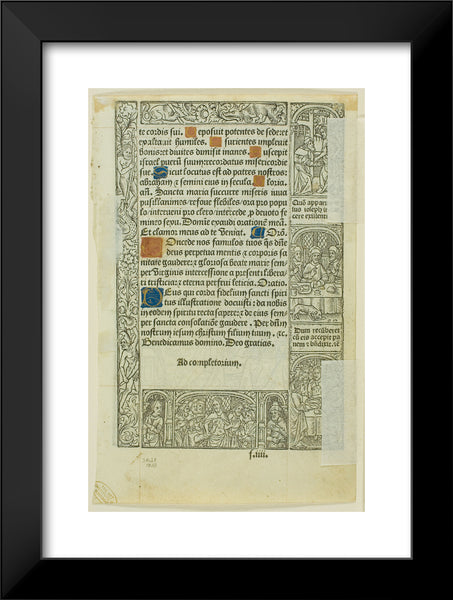 te cordis sui. Deposuit potentes de sede: et
exaltauit humiles. Esurientes impleuit
bonis: et diuites dimisit inanes. Suscepit
israel puerū suum: recordatus misericordie
sue. Sicut locutus est ad patres nostros:
abraham & semini eius in secula. Gloria.
añ. Sancta maria succurre miseris iuua
pusillanimes: refoue flebiles: ora pro popu
lo: interueni pro clero: intercede p deuoto fe
mineo sexu. Domine exaudi orationem meā.
Et clamor meus ad te veniat. Orō.
Concede nos famulos tuos qs dñe
deus perpetua mentis & corporis sa
nitate gaudere: & gloriosa beate marie sem
per virginis intercessione a presenti libera
ri tristicia: et eterna perfrui leticia. Oratio.
Deus qui corda fidelium sancti spiri
tus illustratione docuisti: da nobis
in eodem spiritu recta sapere: & de eius sem
per sancta consolatiōe gaudere. Per dñm
nostrum iesum christum filium tuum. &c.
Benedicamus domino. Deo gratias.
Ad completorium.
f.iiii.
Quō appar
uit ioseph i
cere existenti
Dum recūberet
cū eis accepit pa
nem & bñdixit.